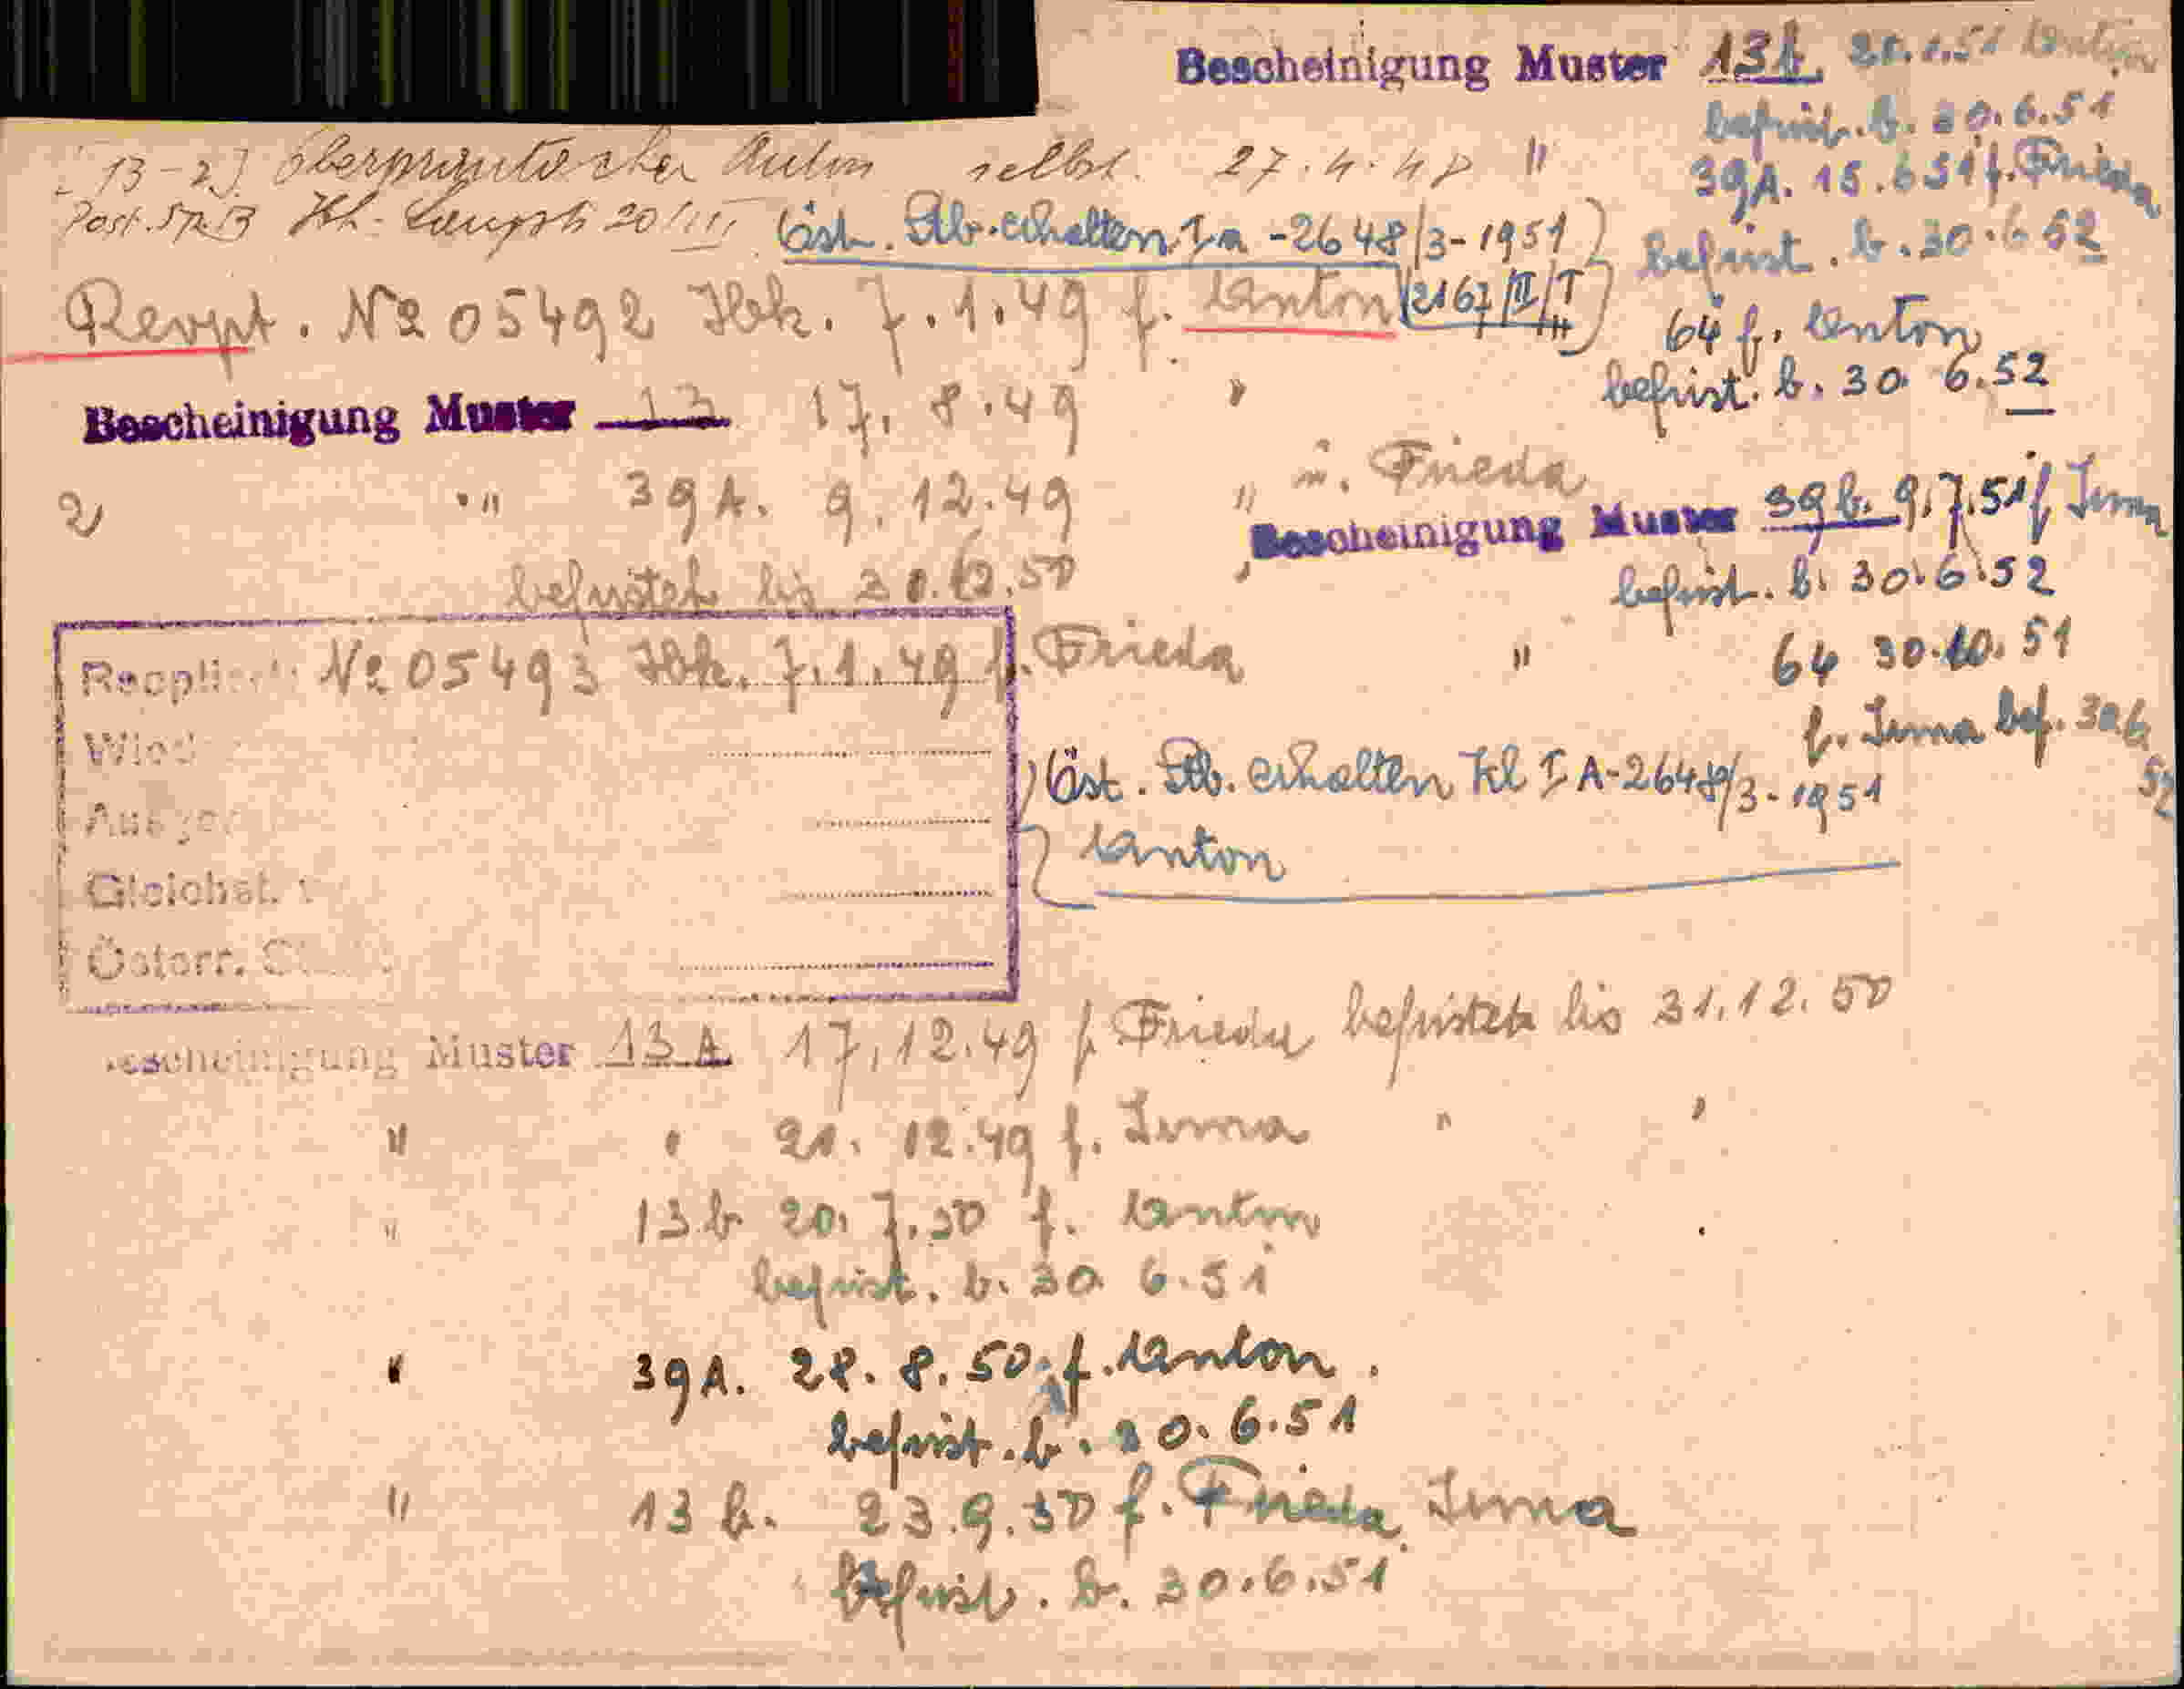 Bescheinigung Muster 13b. 21.1.51 Anton
befrist. b. 30.6.51
39A. 15.6.51 f. Frieda
befrist. b. 30.6.52
64 f. Anton
befrist. b. 30.6.52
[13-2] Anton selbst. 27.4.48 "
Öst. Stb. erhalten I a -2648/3-1951)
Revpt. No 05492 Hbk. 7.1.49 f. Anton (2167/II/T)
Bescheinigung Muster 13 17.8.49 "
" 39A. 9.12.49 " u. Frieda
befristet bis
Bescheinigung Muster 39b. 9.7.51 f. Irma
befrist. b. 30.6.52
" 64 30.10.51
f. Irma bef. 30.6.52
No 05493 Hbk. 7.1.49 f. Frieda
Gleichst.
Österr.
Öst. Stb. erhalten Kl I A-2648/3-1951
Anton
Muster 13A 17.12.49 f. Frieda befristet bis 31.12.50
" " 21.12.49 f. Irma " "
" 13b 20.7.50 f. Anton
befrist. b. 30.6.51
" 39A. 28.8.50. f. Anton.
befrist. b. 30.6.51
" 13b. 23.9.50 f. Frieda, Irma
befrist. b. 30.6.51